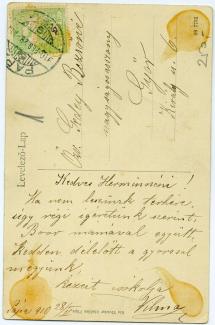 Levelező-Lap
Özv.
nagyságos asszony
Győr
Király u. 6
Kedves Herminnéni!
Ha nem leszünk terhére,
úgy régi igéretünk szerint
mamával együtt
Kedden délelőtt a gyorssal
megyünk.
Kezeit csókolja
Pápa 910 28/ Vilma